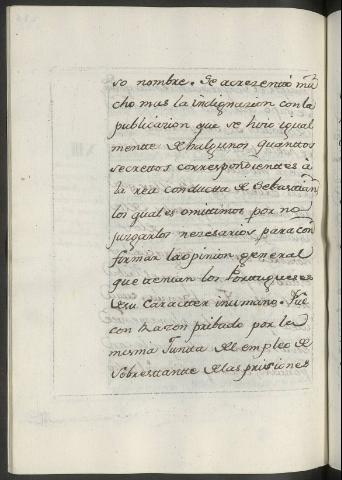 so nombre. Se acresentó mu
cho mas la indignazion con la
publicazion que se hizo igual
mente de halgunos quanttos
secrettos correspondienttes à
la rea conductta de Sebasttian,
los quales omittimos por no
juzgarlos nezesarios para con
formar la opinion general
que ttenian los Porttugueses
de su caractter inumano. Fue
con razon pribado por la
mesma Juntta del empleo de
Sobresttantte de las prisiones